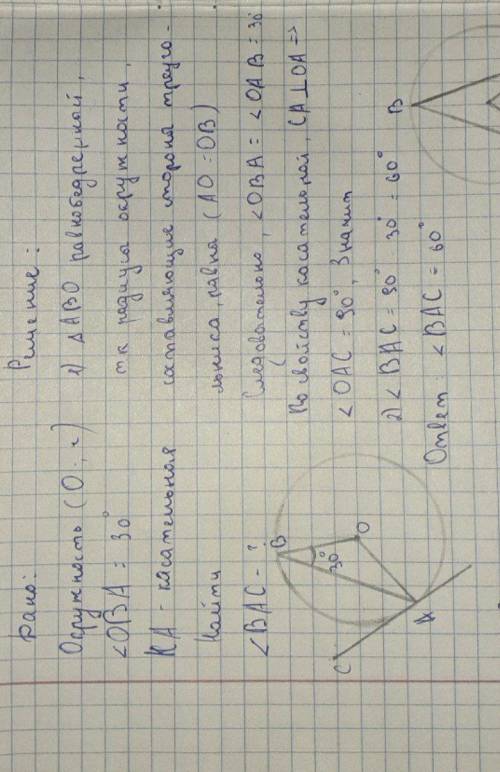 Дано:
Окружность (О; r)
∠OBA = 30°
КА - касательная
Найти
∠BAC - ?
B
30°
O
C
A
Решение:
1) ΔABO равнобедренный,
тк радиусы окружности,
составляющие стороны треуго-
льника, равна (AO=OB)
Следовательно, ∠OBA = ∠OAB = 30°
По свойству касательной, CA⊥OA =>
∠OAC = 90°, Значит
2) ∠BAC = 90° - 30° = 60°
Ответ: ∠BAC = 60°
B